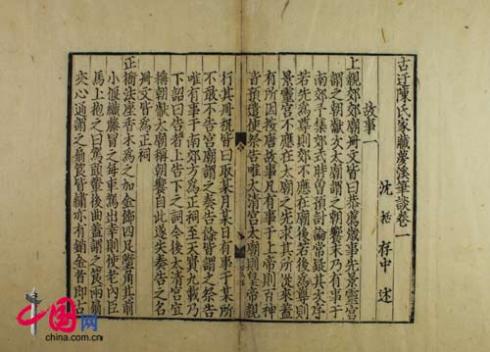 古迂陳氏家藏夢溪筆談卷一
沈括存中述
故事一
上親郊郊廟冊文皆曰恭薦歲事先景靈宮
謂之朝獻次太廟謂之朝饗末乃有事于
南郊予集郊式時曾預討論常疑其次序
若先為尊則郊不應在廟後若後為尊則
景靈宮不應在太廟之先求其所從來蓋
有所因按唐故事凡有事于上帝則百神
皆預遣使祭告唯太清宮太廟則皇帝親
行其冊祝皆曰取某月某日有事于某所
不敢不告宮廟謂之奏告餘皆謂之祭告
唯有事于南郊方為正祠至天寶九載乃
下詔曰告者上告下之詞今後太清宮宜
稱朝獻太廟稱朝饗自此遂失奏告之名
冊文皆為正祠
正衙法座香木為之加金飾四足墮角其前
小偃織藤冒之每車駕出幸則使老內臣
馬上抱之曰駕頭輦後曲蓋謂之筤兩扇
夾心通謂之扇筤皆繡亦有銷金者即古
中国网
china.com.cn